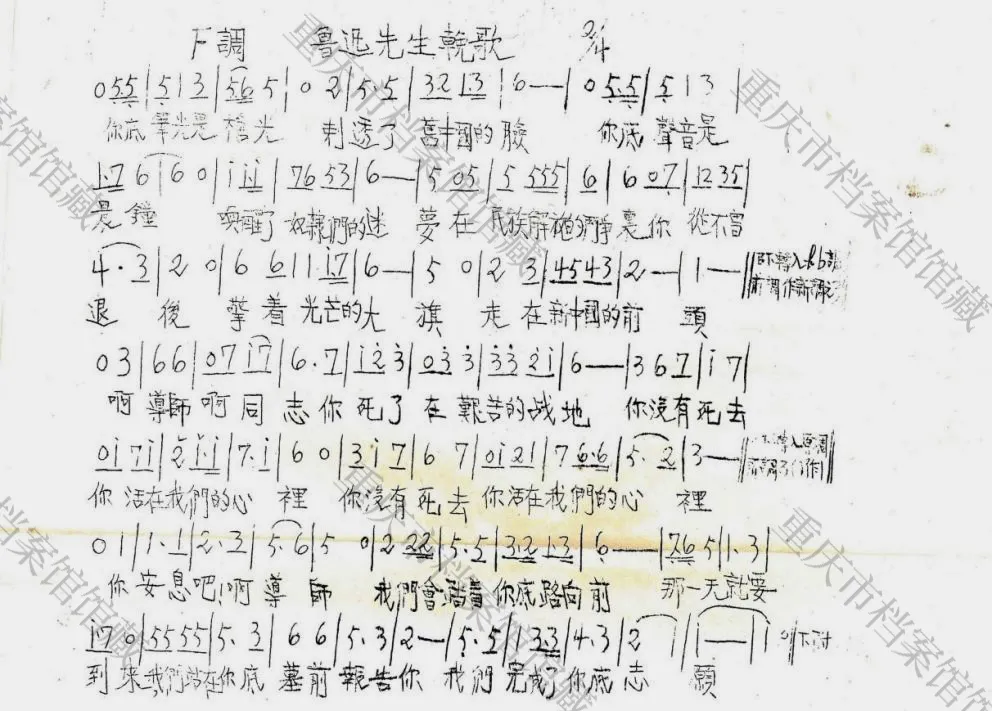 F調 魯迅先生輓歌 2/4
0 5 5 | 5 1 3 | 5 6 5 | 0 2 | 5·5 | 3 2 1·3 | 6 — | 0 5·5 | 5 1 3 |
你底 筆尖是 槍尖 刺透了 舊中國的臉 你底 聲音是
1·7 6 | 6 0 | i i i | 7 6 5 3 | 6 — | 5 0 5 | 5 5 5 5 | 6 | 6 0 7 | 1 2 3 5 |
晨鐘 喚醒了 奴隸們的迷 夢 在 民族解 鬥爭 裏 你 從不曾
4·3 | 2 0 | 6 6 | 1 1 1 7 | 6 — | 5 0 | 2 3 | 4 5 4 3 | 2 — | 1 — ||
退 後 擎 着 光芒的大 旗 走 在 新中國的前 頭
0 3 | 6 6 | 0 7 i 7 | 6·7 | i 2 3 | 0 3 3 | 3 3 2 i | 6 — | 3 6 7 | i 7 |
啊 導師 啊 同 志 你 死了 在 艱苦的战地 你沒有死去
0 i 7 i | 2 i·i | 7·i | 6 0 | 3 i 7 | 6 7 | 0 i 2 1 | 7 6·6 | 5·2 | 3 — ||
你 活在我們的心 裡 你沒有死去 你活在我們的心 裡
0 1 | 1·1 | 2·3 | 5·6 | 5 0 2 2 2 | 5·5 | 3·2 1 3 | 6 — | 7 6 5 | 1·3 |
你 安息吧!啊 導 師 我們會 着 你底路向前 那一天就要
i 7 0 | 5 5 5 5 | 5·3 | 6 6 | 5·3 | 2 — | 5·5 | 1 3 3 | 4·3 | 2 | 1 — |
到 來 我們站在你底 墓前 報告你 我們 完成了 你底志 願
重庆市档案馆馆藏
重庆市档案馆馆藏
重庆市档案馆馆藏
重庆市档案馆馆藏